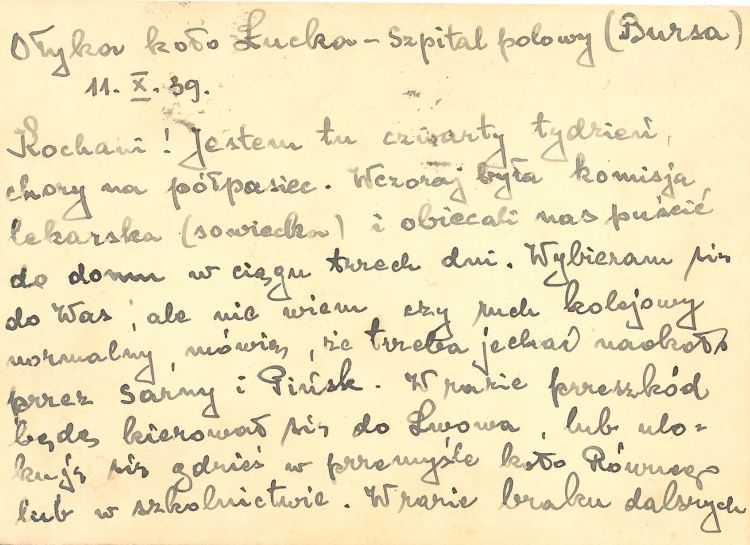 Ołyka koło Łucka – Szpital polowy (Bursa)
11. X. 39.
Kochani! Jestem tu czwarty tydzień,
chory na półpasiec. Wczoraj była komisja
lekarska (sowiecka) i obiecali nas puścić
do domu w ciągu trzech dni. Wybieram się
do Was, ale nie wiem czy ruch kolejowy
normalny, mówią, że trzeba jechać naokoło
przez Sarny i Pińsk. W razie przeszkód
będę kierował się do Lwowa, lub ulo-
kuję się gdzieś w przemyśle koło Równego
lub w szkolnictwie. W razie braku dalszych